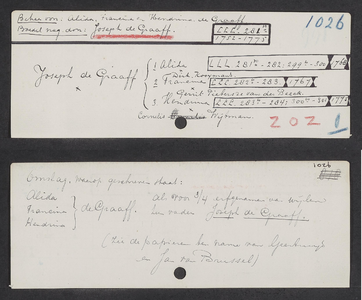 Beheer voor: Alida, Francina en Hendrina de Graaff
Bewijs reg. door: Joseph de Graaff.
LLL. 281ro
1752-1775
1026
Joseph de Graaff
1 Alida
LLL 281ro-282; 299ro-300
1760
Dirk Kooymans
2 Francina
LLL 282ro-283
1767
Gerrit Pieterse van der Beeck
3 Hendrina
LLL 283ro-284; 300ro-
1775
Cornelis Wijman
202
1
1026
Omslag, waarop geschreven staat:
Alida
Francina
Hendrina
de Graaff.
als voor 3/4 erfgenamen van wijlen
Joseph de Graaff.
(Zie de papieren ten name van
en Jan van Brussel)